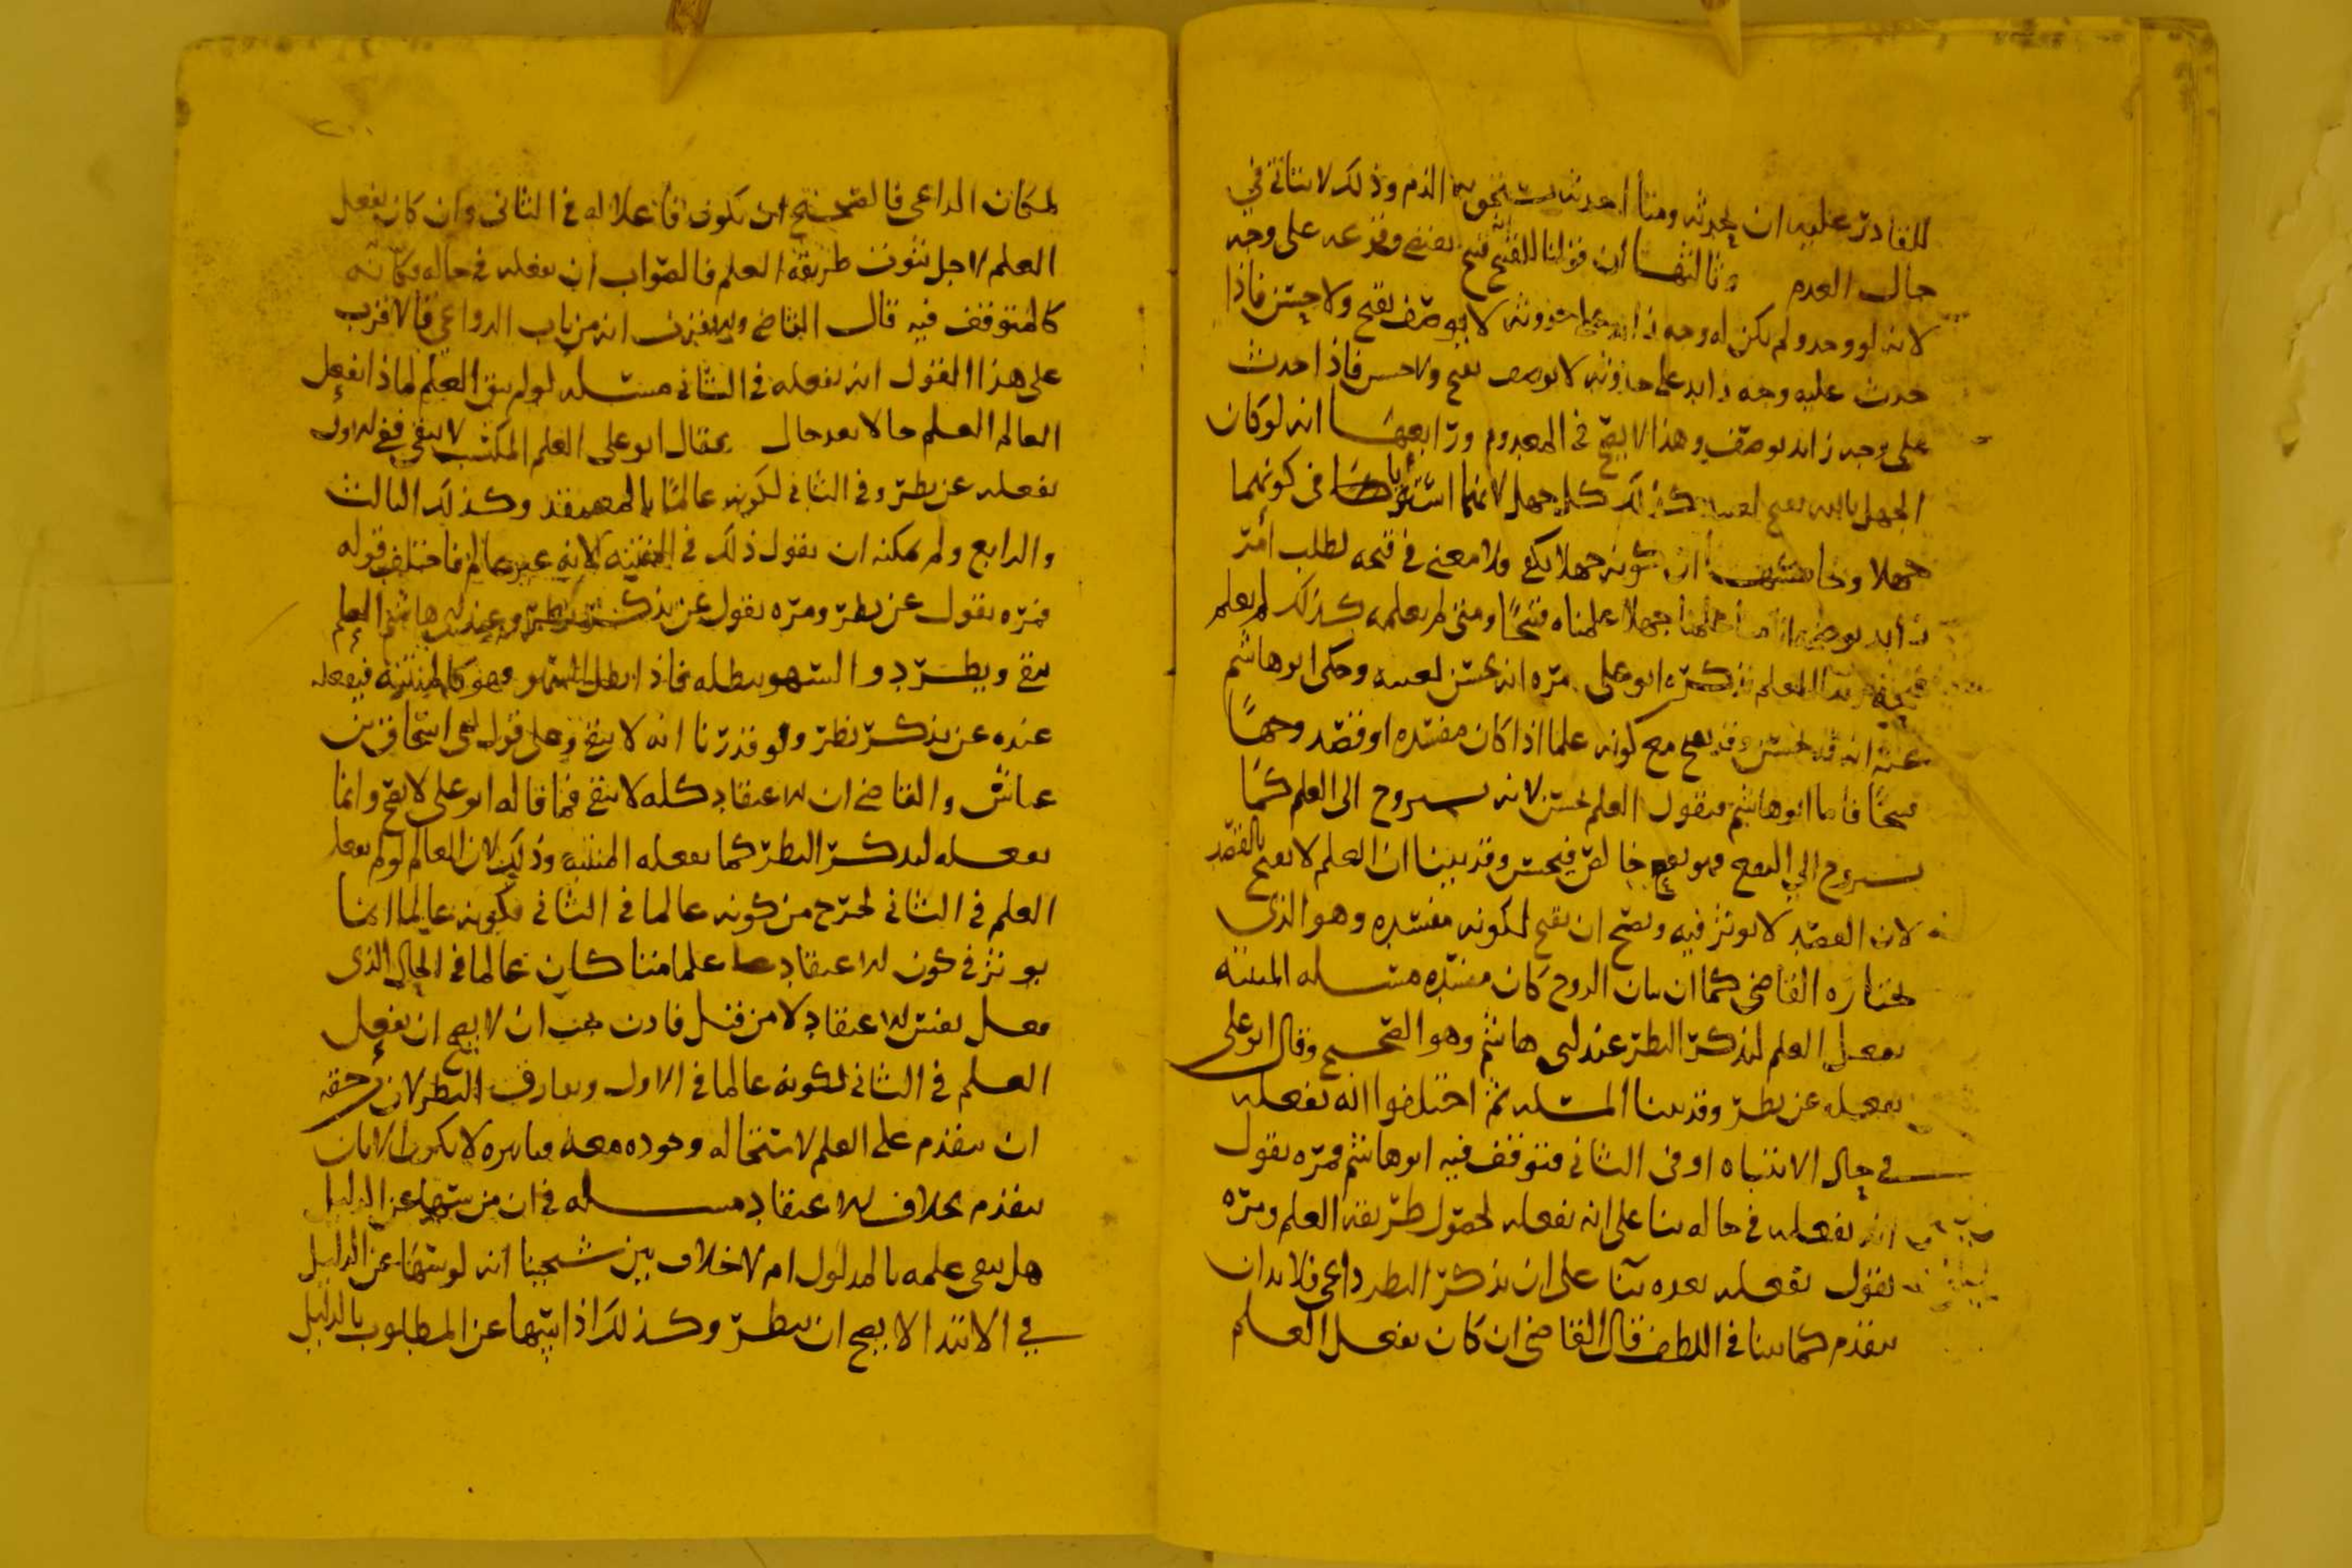 للقادر عليه ان يحدثه ومتى احدثه يستحق به الذم وذلك لا يتاتى في
حال العدم وثالثها ان قولنا للقبيح انه قبح يقتضي وقوعه على وجه
لانه لو وجد ولم يكن له وجه زايد على حدوثه لا يوصف بقبح ولا حسن فاذا
حدث عليه وجه زايد على حدوثه لا يوصف بقبح ولا حسن فاذا حدث
على وجه زايد يوصف وهذا لا يصح في المعدوم ورابعها انه لو كان
الجهل بالله يقبح لعينه كذلك كل جهل لانهما اشتركا في كونهما
جهلا وخامسها ان كونه جهلا يكفي فلا معنى في قبحه لطلب امر
زايد يوضحه انا متى علمناه جهلا علمناه قبيحا ومتى لم يعلمه كذلك لم يعلم
قبحه العلم ابو علي مره انه يحسن لعينه وحكى ابو هاشم
عنه انه قد يحسن وقد يقبح مع كونه علما اذا كان مفسده او قصد وجها
قبيحا فاما ابو هاشم فيقول العلم يحسن لانه يستروح الى العلم كما
يستروح الى النفع فهو نفع خالص فيحسن وقد بينا ان العلم لا يقبح بالقصد
لان القصد لا يوثر فيه ويصح ان يقبح لكونه مفسده وهو الذي
يختاره القاضي كما ان بيان الروح كان مفسده مسله المنتبه
يفعل العلم لتذكر النظر عند ابي هاشم وهو الصحيح وقال ابو علي
يفعله عن نظر وقد بينا المسله ثم اختلفوا انه يفعله
في حال الانتباه او في الثاني فتوقف فيه ابو هاشم فمره يقول
انه يفعله في حاله بنا على انه يفعله لحصول طريقه العلم ومره
يقول يفعله بعده بنا على ان تذكر النظر داعي فلا بد ان
يتقدم كما بينا في اللطف قال القاضي ان كان يفعل العلم
٢٠٠
لمكان الداعي فالصحيح ان يكون فاعلا له في الثاني وان كان يفعل
العلم لاجل ثبوت طريقه العلم فالصواب ان يفعله في حاله وكانه
كالمتوقف فيه قال القاضي انه من باب الدواعي فالاقرب
على هذا القول انه يفعله في الثاني مسله لو لم يبق العلم لماذا يفعل
العالم العلم حالا بعد حال فقال ابو علي العلم المكتسب لا يبقى ففي الاول
يفعله عن نظر وفي الثاني لكونه عالما بالمعتقد وكذلك الثالث
والرابع ولم يمكنه ان يقول ذلك في المنتبه لانه غير عالم فاختلف قوله
فمره يقول عن نظر ومره يقول عن تذكر نظر وعند ابي هاشم العلم
يبقى ويطرد والسهو يبطله فاذا ابطل السهو فهو كالمنتبه فيفعله
عنده عن تذكر نظر ولو قدرنا انه لا يبقى وعلى قول ابي اسحاق بن
عياش والقاضي ان الاعتقاد كله لا يبقى فما قاله ابو علي لا يصح وانما
يفعله لتذكر النظر كما يفعله المنتبه وذلك لان العالم لو لم يفعل
العلم في الثاني لخرج من كونه عالما في الثاني فكونه عالما انما
يوثر في كون الاعتقاد علما متى كان عالما في الحال الذي
فعل نفس الاعتقاد لا من قبل فاذن يجب ان لا يصح ان يفعل
العلم في الثاني لكونه عالما في الاول ويفارق النظر لان حقه
ان يتقدم على العلم لاستحاله وجوده معه فتاثيره لا يكون الا بان
يتقدم بخلاف الاعتقاد مسله في ان من سها عن الدليل
هل يبقى علمه بالمدلول ام لا خلاف بين شيخينا انه لو سها عن الدليل
في الابتدا لا يصح ان ينظر وكذلك اذا سها عن المطلوب بالدليل